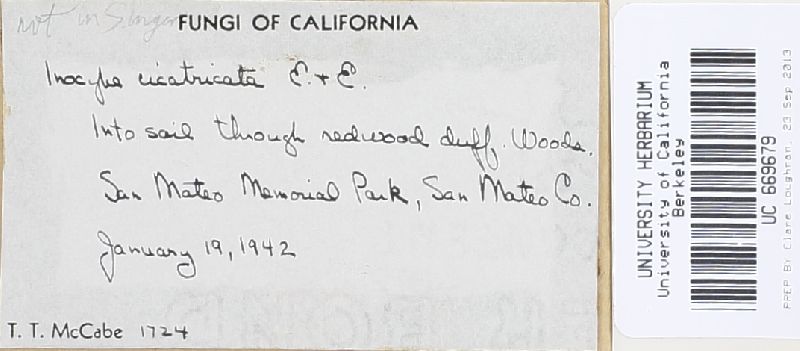 not in Singer
FUNGI OF CALIFORNIA
Inocybe cicatricata E. + E.
Into soil through redwood duff. Woods.
San Mateo Memorial Park, San Mateo Co.
January 19, 1942
T. T. McCabe 1724
UNIVERSITY HERBARIUM
University of California
Berkeley
UC 669679
PREP BY Clare Loughran, 23 Sep 2013